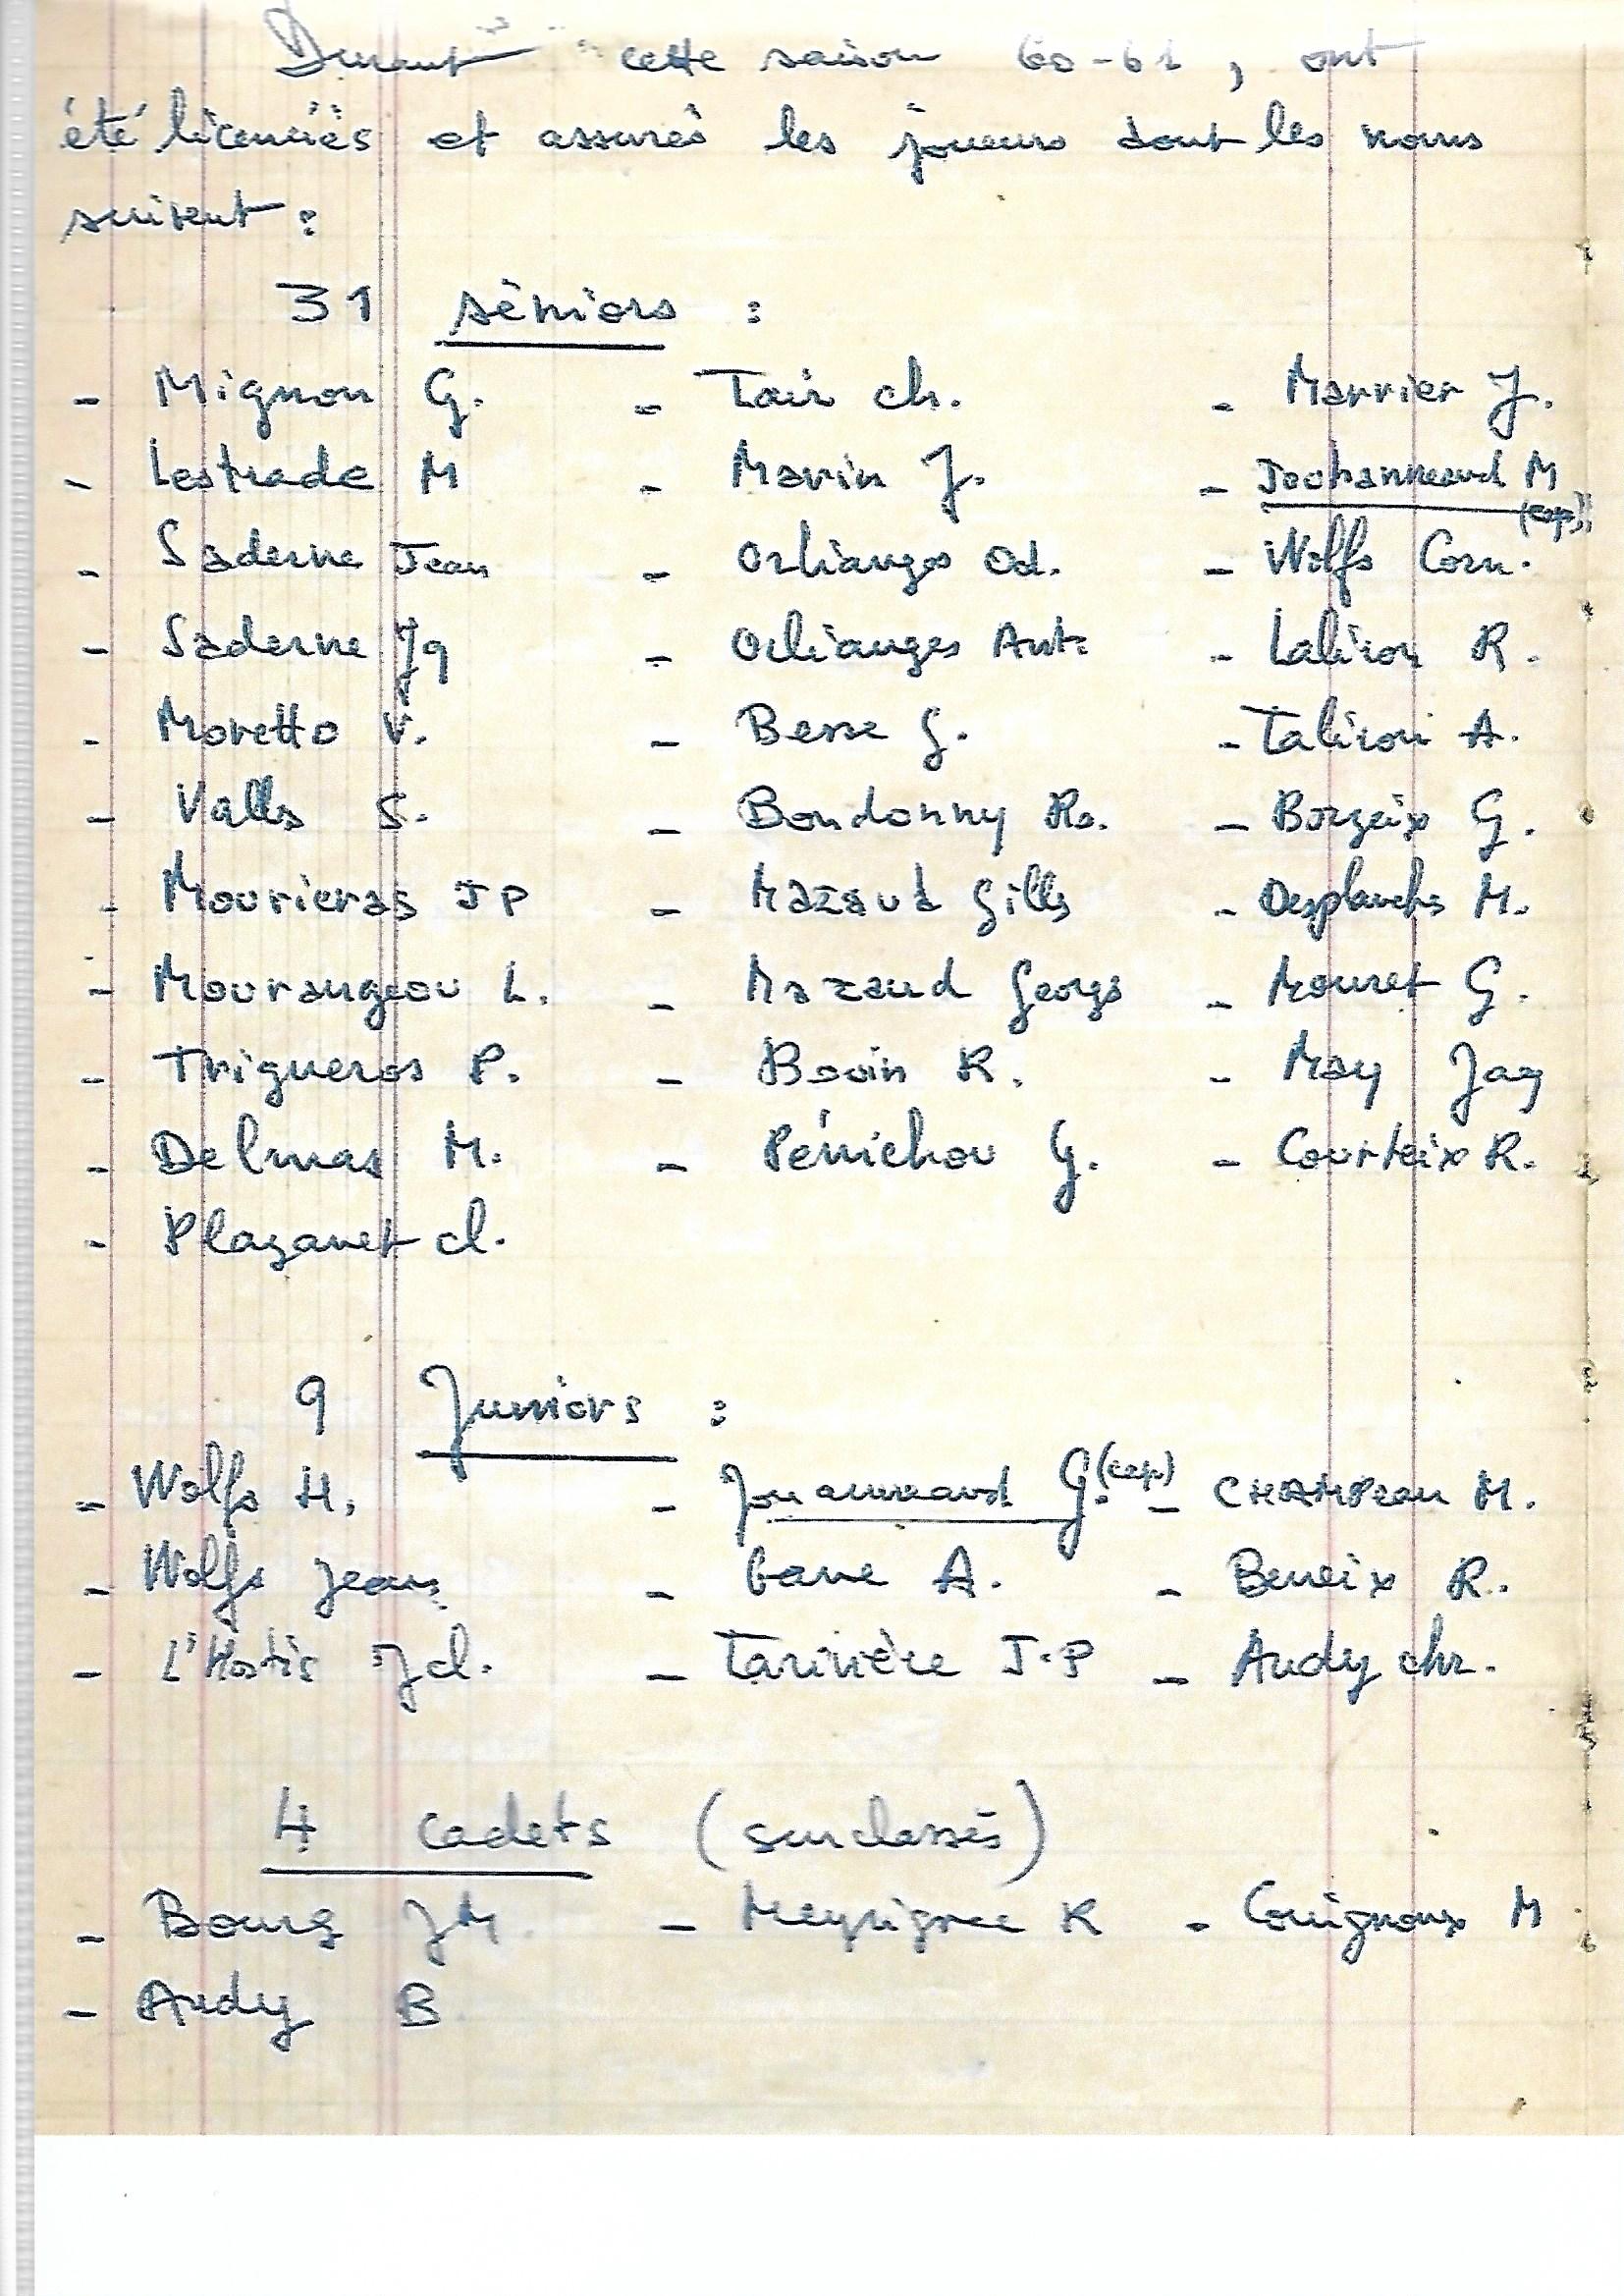 Durant cette saison 60-61, ont
été licenciés et assurés les joueurs dont les noms
suivent :
31 séniors :
- Mignon G. - Tair ch. - Marrier J.
- Lestrade M - Marin J. - Jochanneaud M (cap)
- Saderne Jean - Orlianges Od. - Wolfs Corn.
- Saderne Jq - Orlianges Ant. - Laliron R.
- Moretto V. - Besse G. - Talironi A.
- Valls S. - Bondonny Ro. - Borzeix G.
- Mourieras JP - Mazaud Gilles - Desplanches M.
- Mourangeou L. - Mazaud Georges - Mouret G.
- Trigueros P. - Bouin R. - May Jaq
- Delmas M. - Pénichou G. - Courteix R.
- Plazanet cl.
9 Juniors :
- Wolfs H. - Jouanneaud G. (cap) - CHAMPeau M.
- Wolfs Jean - Gane A. - Beneix R.
- L'Hostis J cl. - Tarivière J.P - Audy chr.
4 cadets (surclassés)
- Bourg JM. - Meyrignac R - Couignoux M
- Audy B